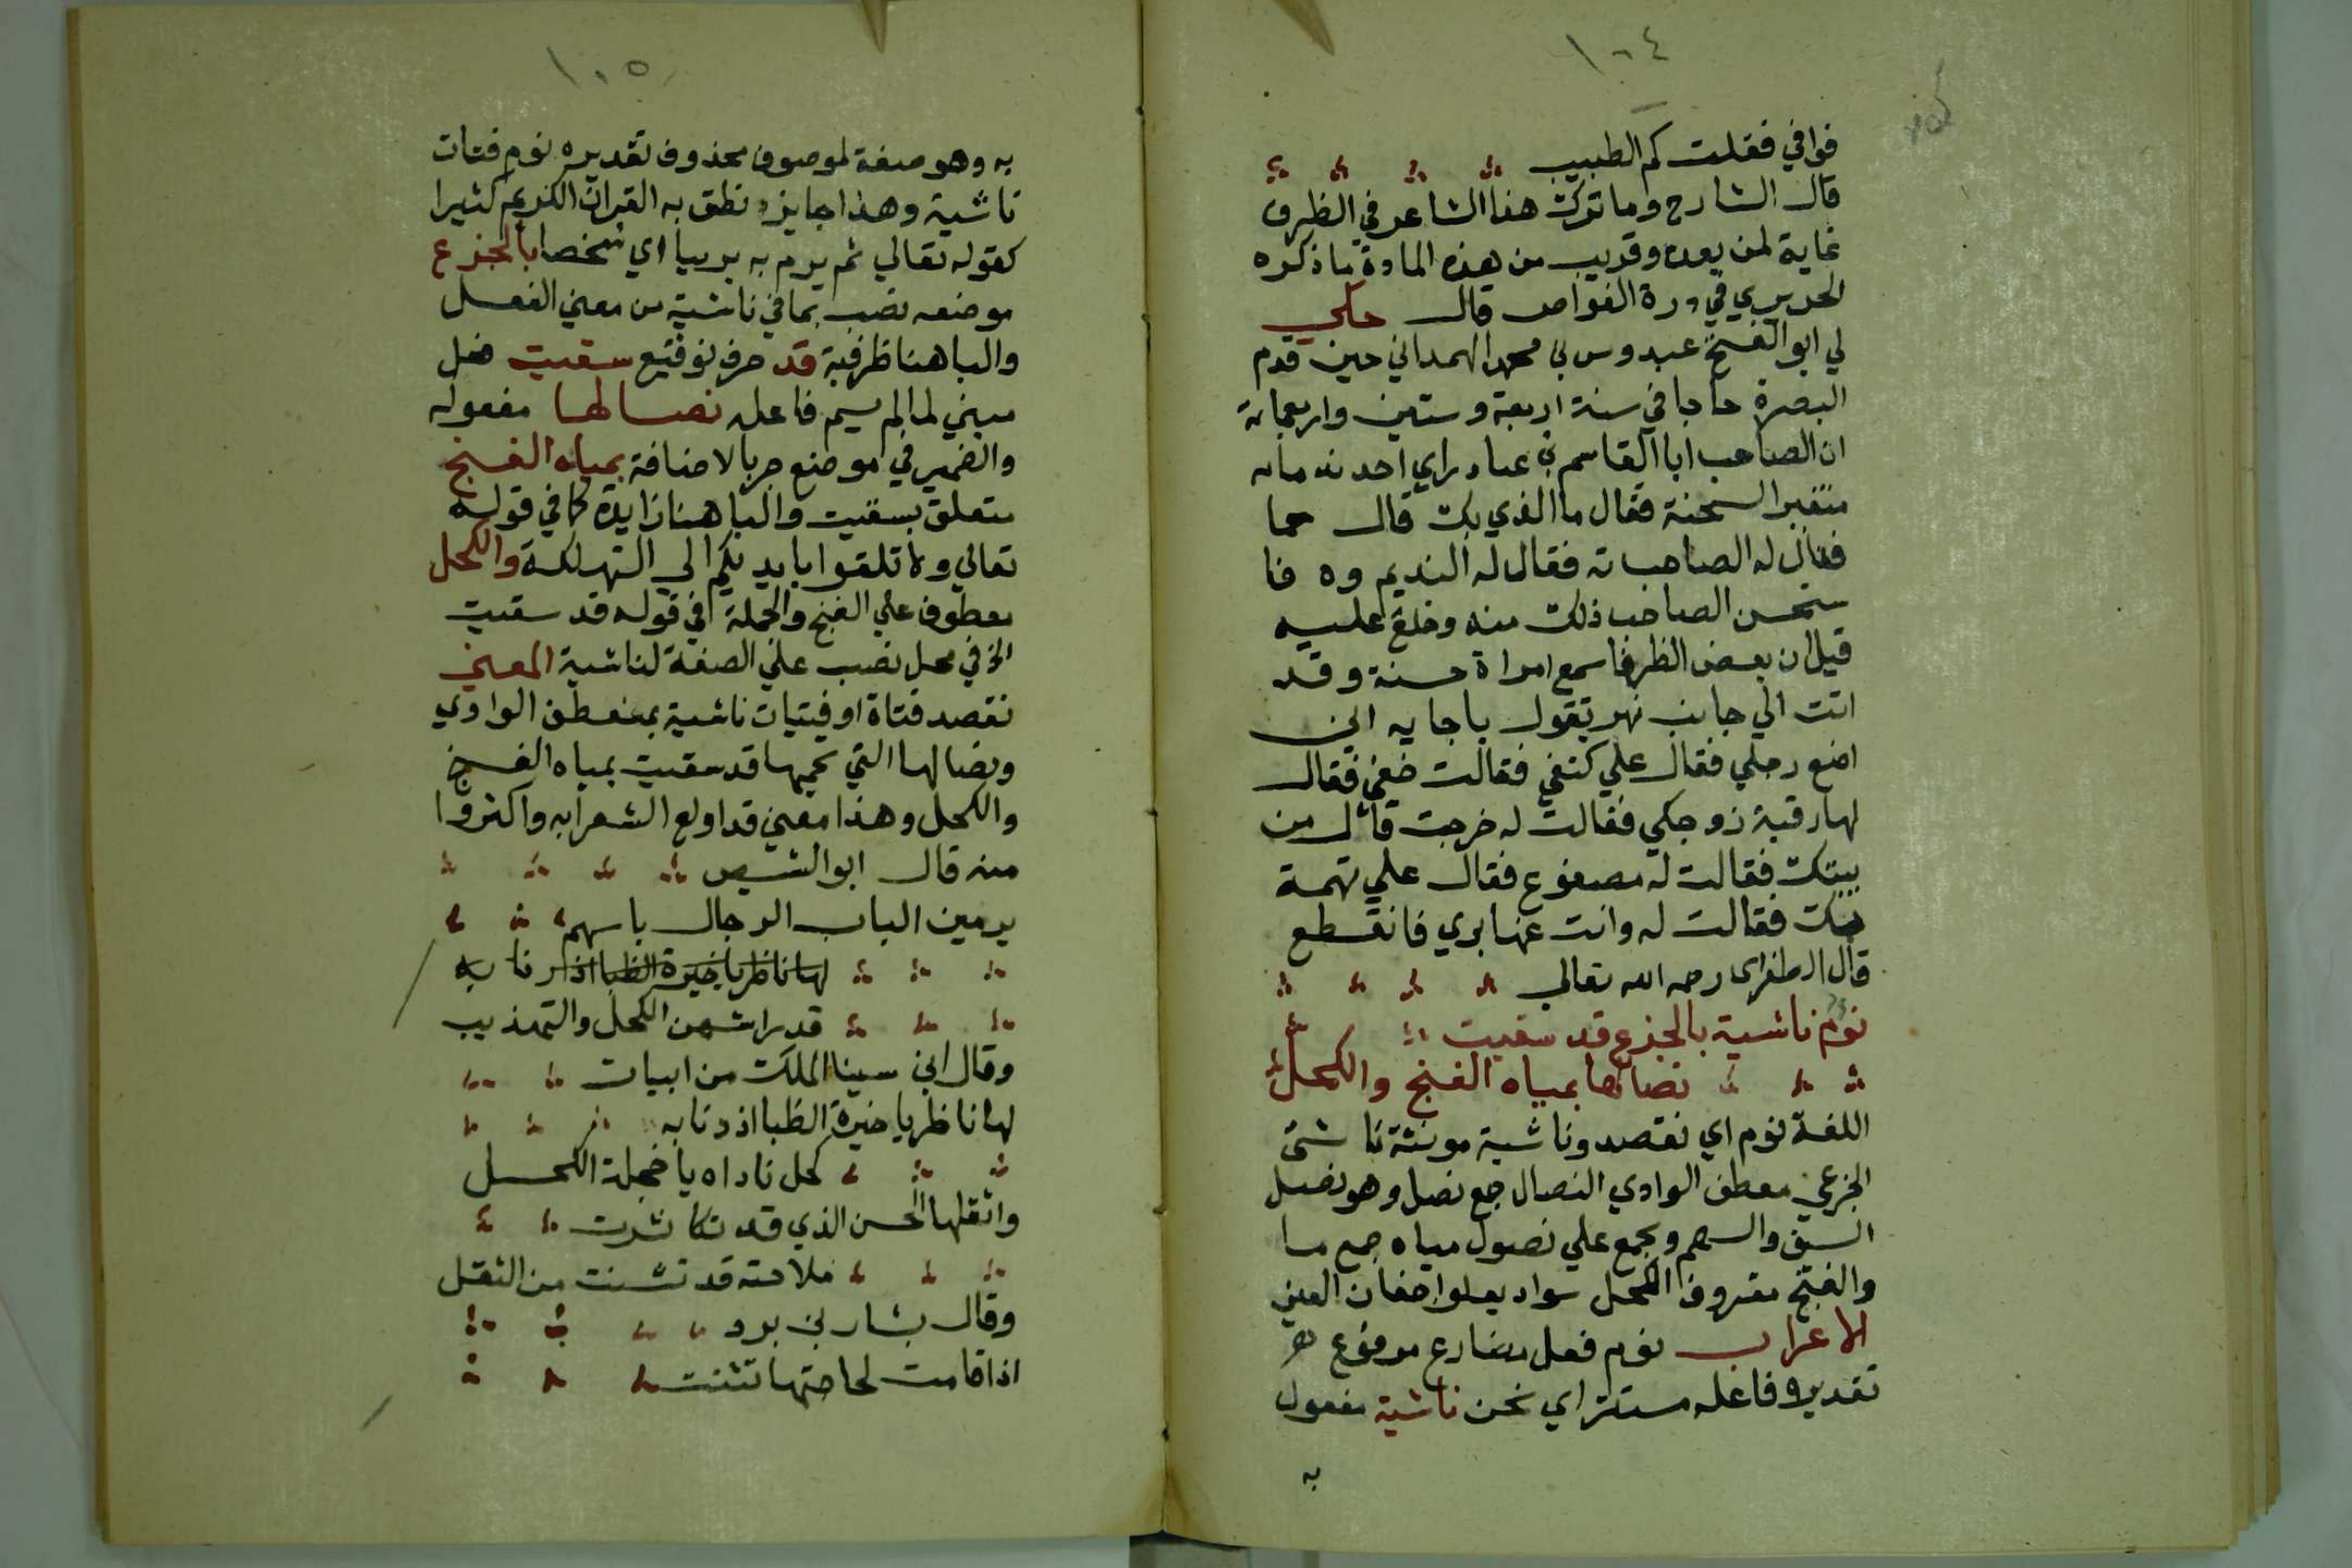 ١٠٤
فوافي فقلت كم الطبيب
قال الشارح وما تركت هذا الشاعر في الظرف
غاية لمن بعده وقريب من هذه المادة ما ذكره
الحريري في درة الغواص قال حكي
لي ابو الفتح عبدوس بن محمد الهمداني حين قدم
البصرة حاجا في سنة اربعة وستين واربعماية
ان الصاحب ابا القاسم بن عباد راي احد ندمايه
متغير السحنة فقال ما الذي بك قال حما
فقال له الصاحب ته فقال له النديم وه فا
ستحسن الصاحب ذلك منه وخلع عليه
قيل ان بعض الظرفا سمع امراة حسنة وقد
اتت الي جانب نهر تقول يا جايه اين
اضع رجلي فقال علي كتفي فقالت ضغي فقال
لها رقبة زوجكي فقالت له خرجت قال من
بيتك فقالت له مصفوع فقال علي تهمة
بك فقالت له وانت عنها بري فانقطع
قال الطغراي رحمه الله تعالي
نوم ناشية بالجزع قد سقيت
نصالها بمياه الغنج والكحل
اللغة نوم اي نقصد وناشية مونثة ناشئ
الجزع معطف الوادي النصال جمع نصل وهو نصل
السيف والسهم ويجمع علي نصول مياه جمع ما
والغنج معروف الكحل سواد يعلو اجفان العين
الاعراب نوم فعل مضارع مرفوع
تقديره فاعله مستتر اي نحن ناشية مفعول
به
١٠٥
به وهو صفة لموصوف محذوف تقديره نوم فتات
ناشية وهذا جايز ونطق به القران الكريم كثيرا
كقوله تعالي ثم يرم به بريا اي شخصا بالجزع
موضعه نصب بما في ناشية من معني الفعل
والبا هنا ظرفية قد حرف توقيع سقيت فعل
مبني لما لم يسم فاعله نصالها مفعوله
والضمير في موضع جر بالاضافة بمياه الغنج
متعلق بسقيت والبا هنا زايدة كما في قوله
تعالي ولا تلقوا بايديكم الي التهلكة والكحل
معطوف علي الغنج والجملة في قوله قد سقيت
الخ في محل نصب علي الصفة لناشية المعني
نقصد فتاة او فتيات ناشية بمنعطف الوادي
ونصالها التي تحميها قد سقيت بمياه الغنج
والكحل وهذا معني قد اولع الشعرا به واكثروا
منه قال ابو الشيص
يرمين الباب الرجال باسهم
لها ناظر يا حيرة الظبا اذ رنا به
قد راشهن الكحل والتهذيب
وقال ابن سينا الملك من ابيات
لها ناظر يا حيرة الظبا اذ دنا به
كحل ناداه يا خجلة الكحل
واثقلها الحسن الذي قد تكاثرت
ملاحته قد تشنت من الثقل
وقال بشار بن برد
اذا قامت لحاجتها تثنت